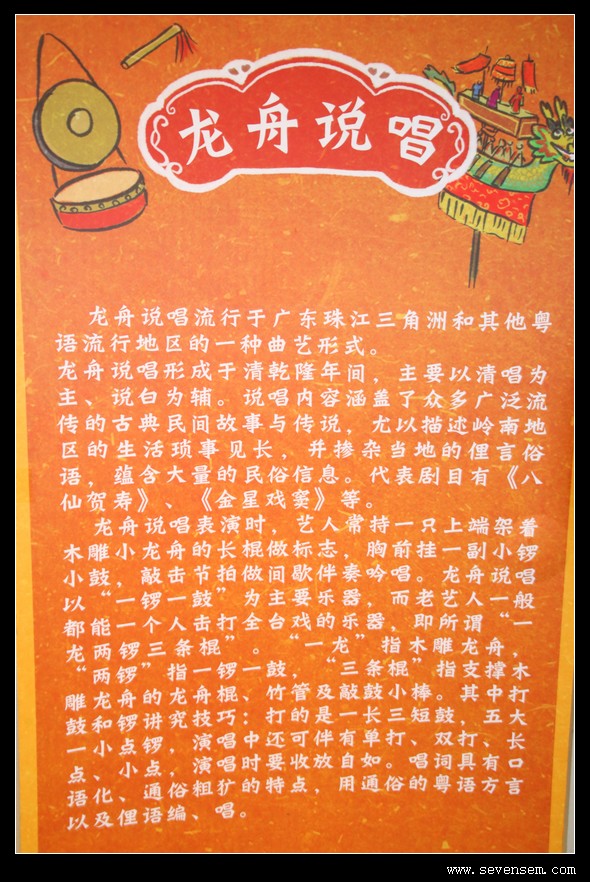 龙舟说唱
龙舟说唱流行于广东珠江三角洲和其他粤
语流行地区的一种曲艺形式。
龙舟说唱形成于清乾隆年间，主要以清唱为
主、说白为辅。说唱内容涵盖了众多广泛流
传的古典民间故事与传说，尤以描述岭南地
区的生活琐事见长，并掺杂当地的俚言俗
语，蕴含大量的民俗信息。代表剧目有《八
仙贺寿》、《金星戏窦》等。
龙舟说唱表演时，艺人常持一只上端架着
木雕小龙舟的长棍做标志，胸前挂一副小锣
小鼓，敲击节拍做间歇伴奏吟唱。龙舟说唱
以“一锣一鼓”为主要乐器，而老艺人一般
都能一个人击打全台戏的乐器，即所谓“一
龙两锣三条棍”。“一龙”指木雕龙舟，
“两锣”指一锣一鼓，“三条棍”指支撑木
雕龙舟的龙舟棍、竹管及敲鼓小棒。其中打
鼓和锣讲究技巧：打的是一长三短鼓，五大
一小点锣，演唱中还可伴有单打、双打、长
点、小点，演唱时要收放自如。唱词具有口
语化、通俗粗犷的特点，用通俗的粤语方言
以及俚语编、唱。
www.sevensem.com